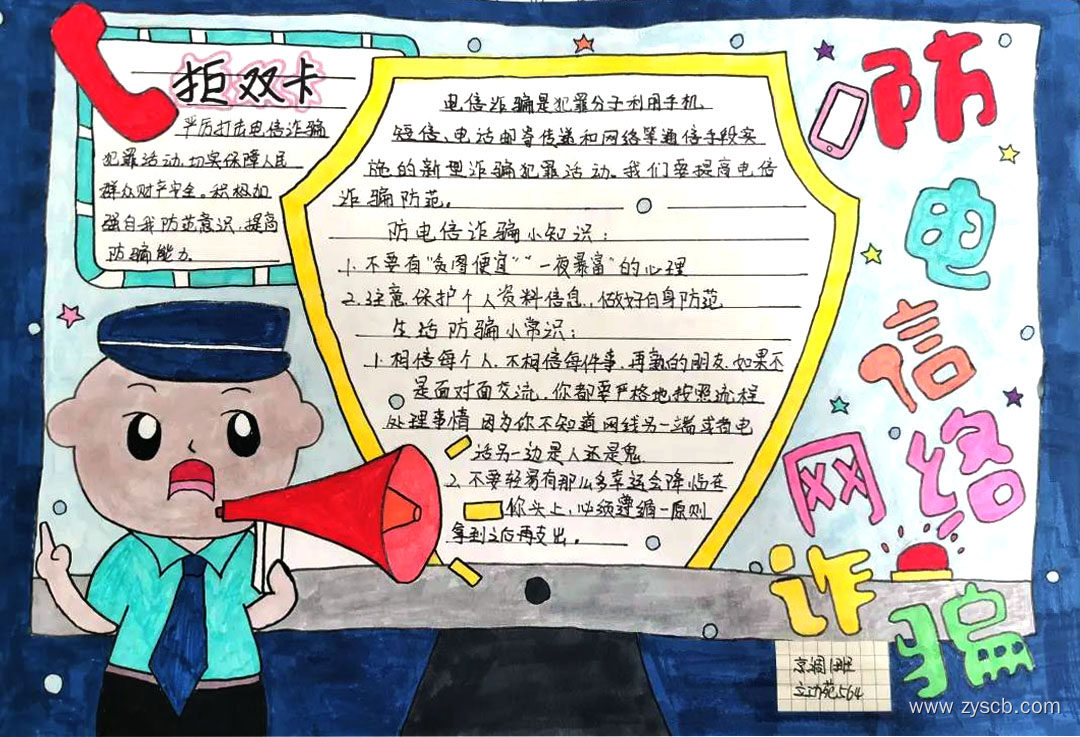 拒双卡
严厉打击电信诈骗
犯罪活动,切实保障人民
群众财产安全。积极加
强自我防范意识,提高
防骗能力。
电信诈骗是犯罪分子利用手机、
短信、电话邮寄传递和网络等通信手段实
施的新型诈骗犯罪活动。我们要提高电信
诈骗防范。
防电信诈骗小知识:
1.不要有“贪图便宜”“一夜暴富”的心理
2.注意保护个人资料信息,做好自身防范
生活防骗小常识:
1.相信每个人,不相信每件事,再熟的朋友,如果不
是面对面交流,你都要严格地按照流程
处理事情,因为你不知道网线另一端或者电
话另一边是人还是鬼
2.不要轻易有那么多幸运会降临在
你头上,必须遵循一原则
拿到之后再支出。
防电信网络诈骗
京润1班
www.zyscb.com